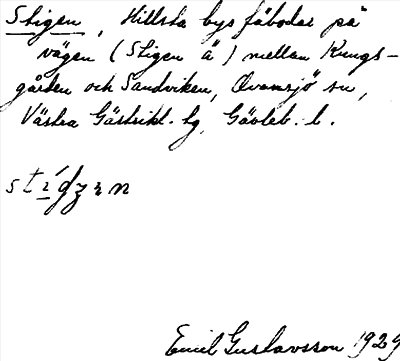 Stigen, Hillsta bys fäbodar på
vägen (Stigen ä) mellan Kungs-
gården och Sandviken, Ovansjö sn,
Västra Gästrikl. hg, Gävleb. l.
Emil Gustavsson 1929